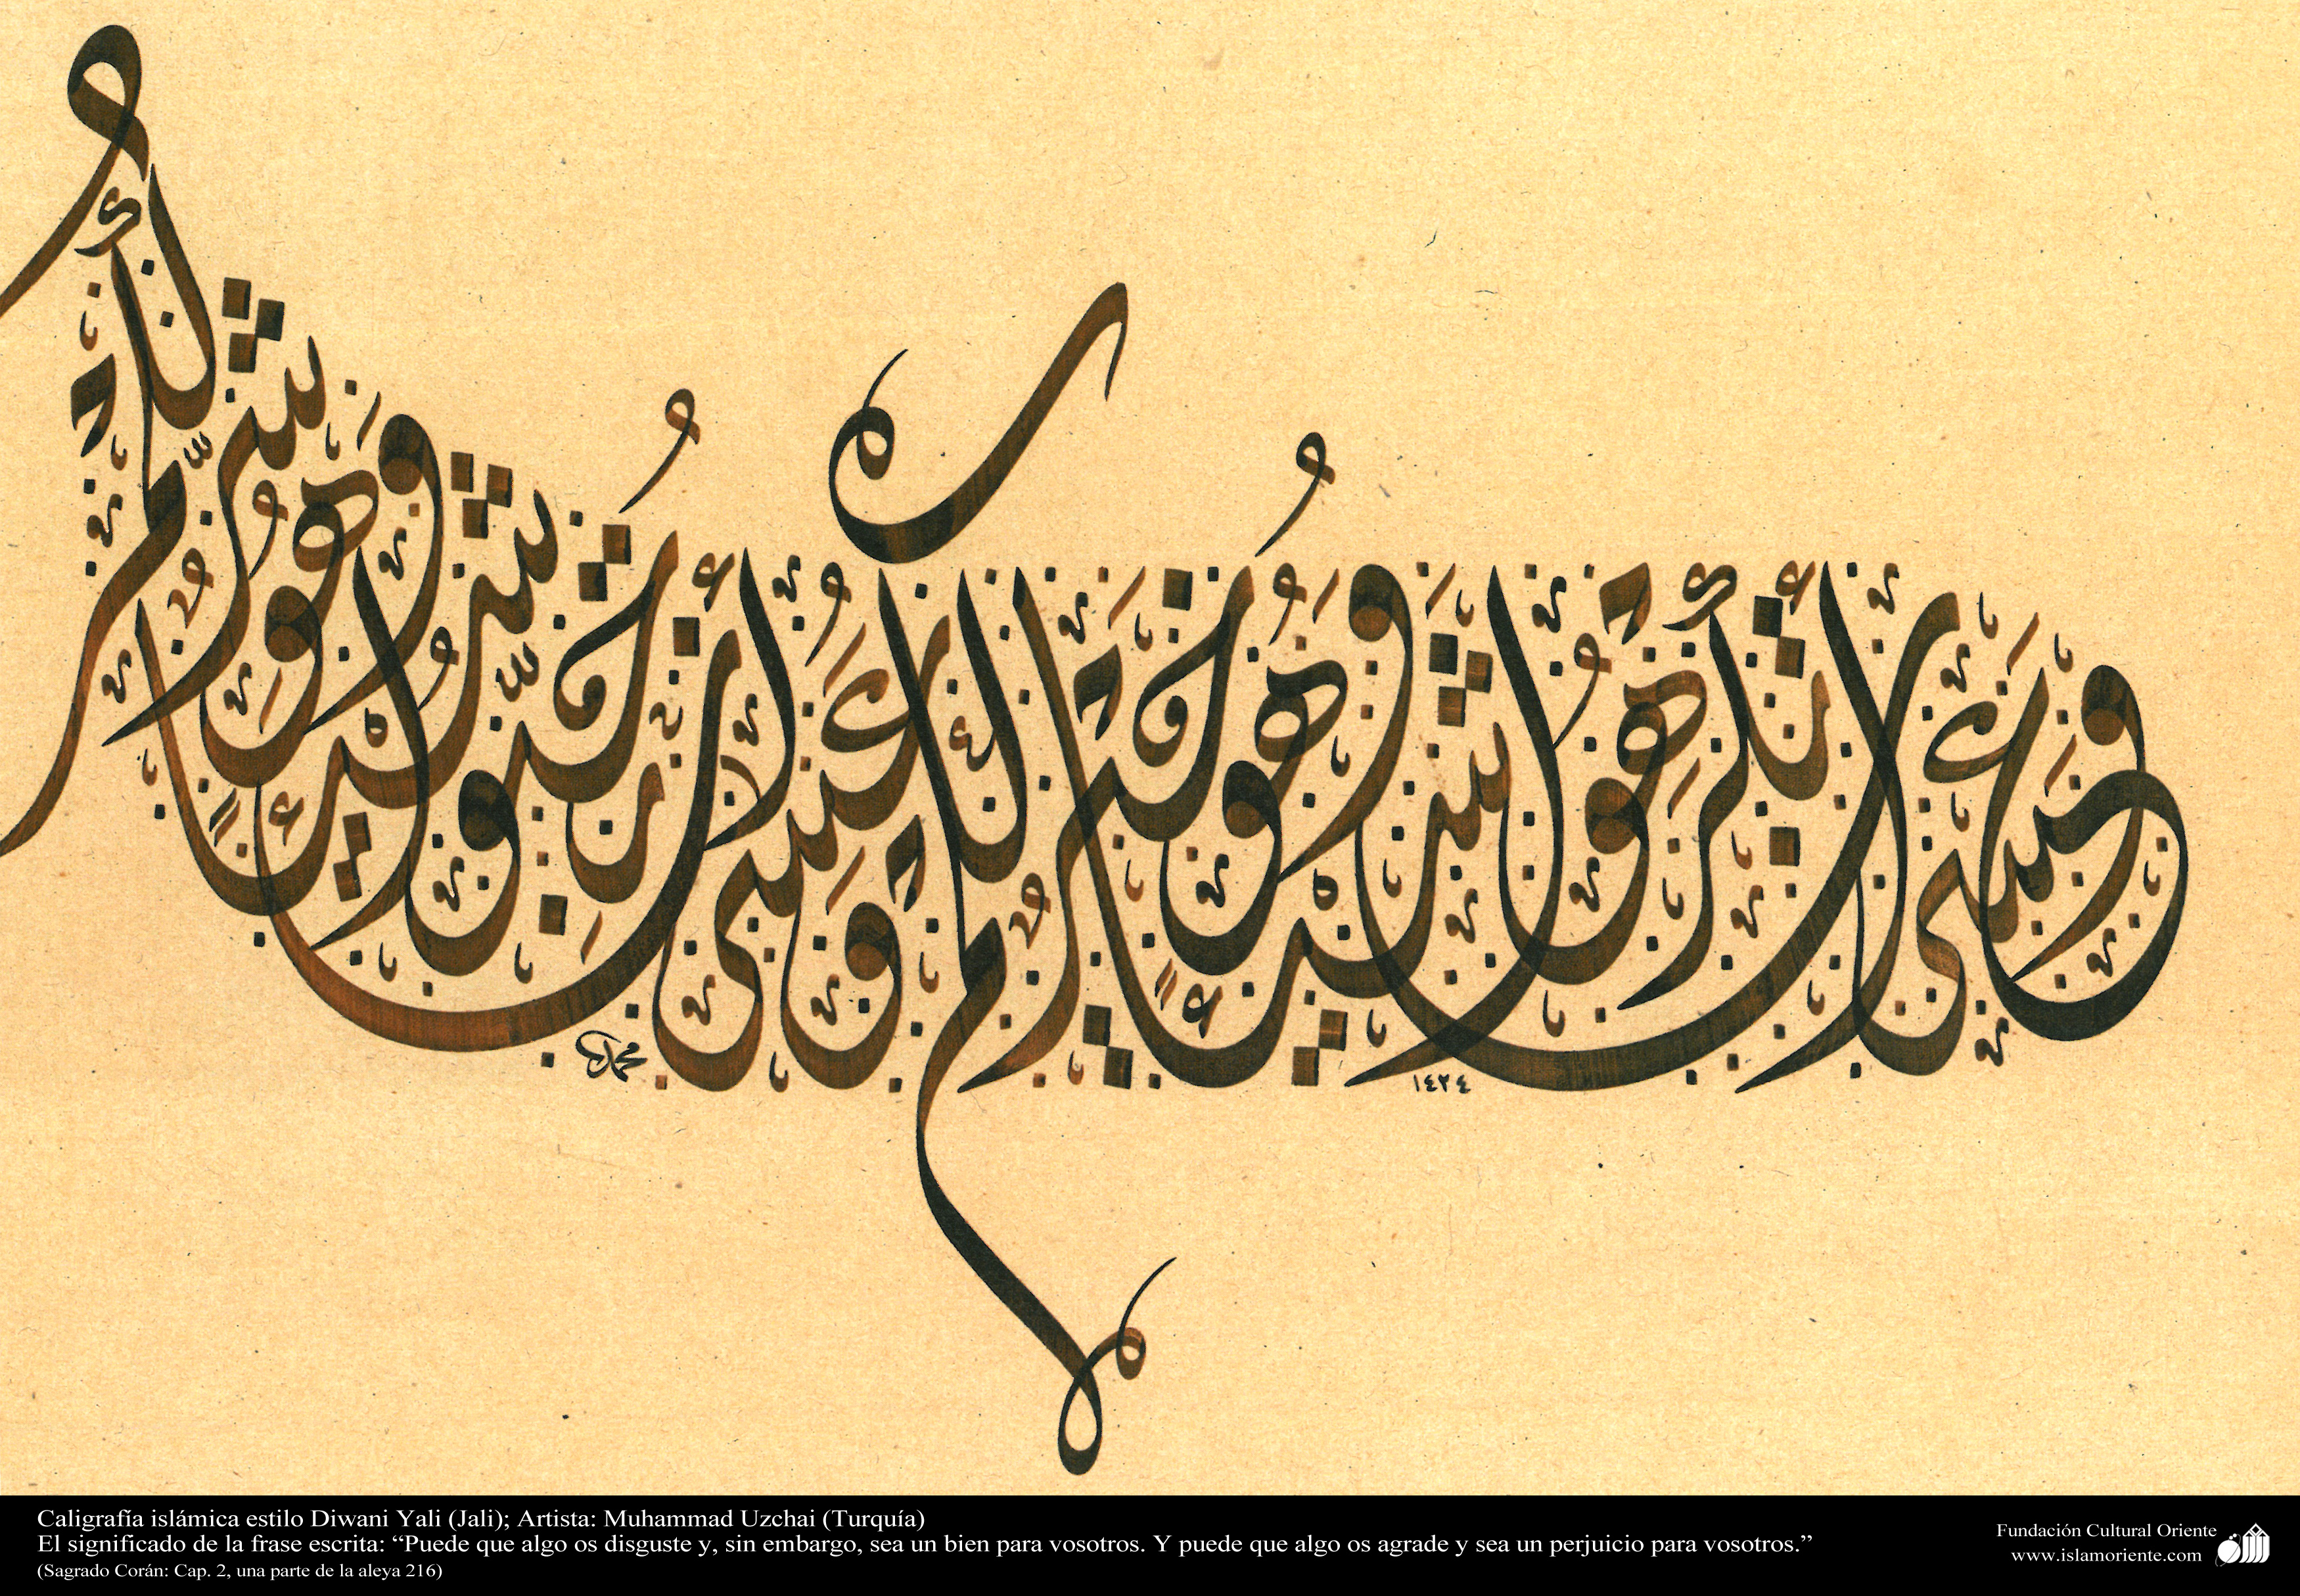 وَعَسَى أَنْ تَكْرَهُوا شَيْئًا وَهُوَ خَيْرٌ لَكُمْ وَعَسَى أَنْ تُحِبُّوا شَيْئًا وَهُوَ شَرٌّ لَكُمْ
محمد
١٤٣٤
Caligrafía islámica estilo Diwani Yali (Jali); Artista: Muhammad Uzchai (Turquía)
El significado de la frase escrita: “Puede que algo os disguste y, sin embargo, sea un bien para vosotros. Y puede que algo os agrade y sea un perjuicio para vosotros.”
(Sagrado Corán: Cap. 2, una parte de la aleya 216)
Fundación Cultural Oriente
www.islamoriente.com